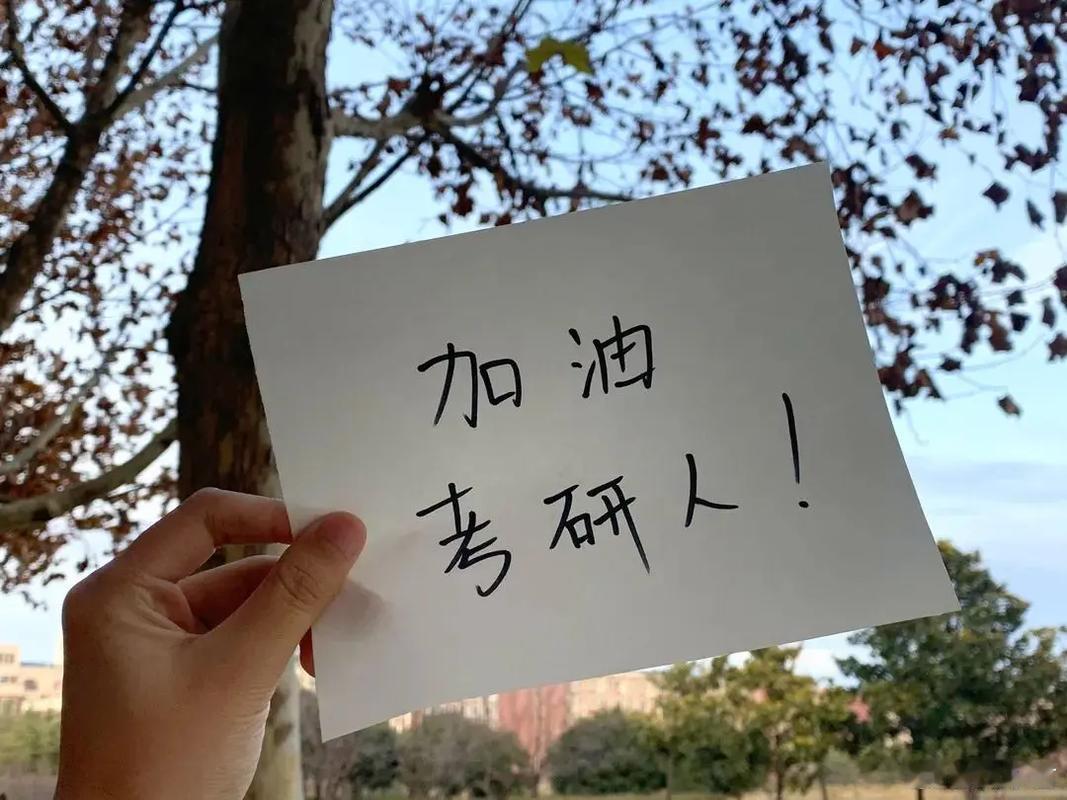 加油
考研人！